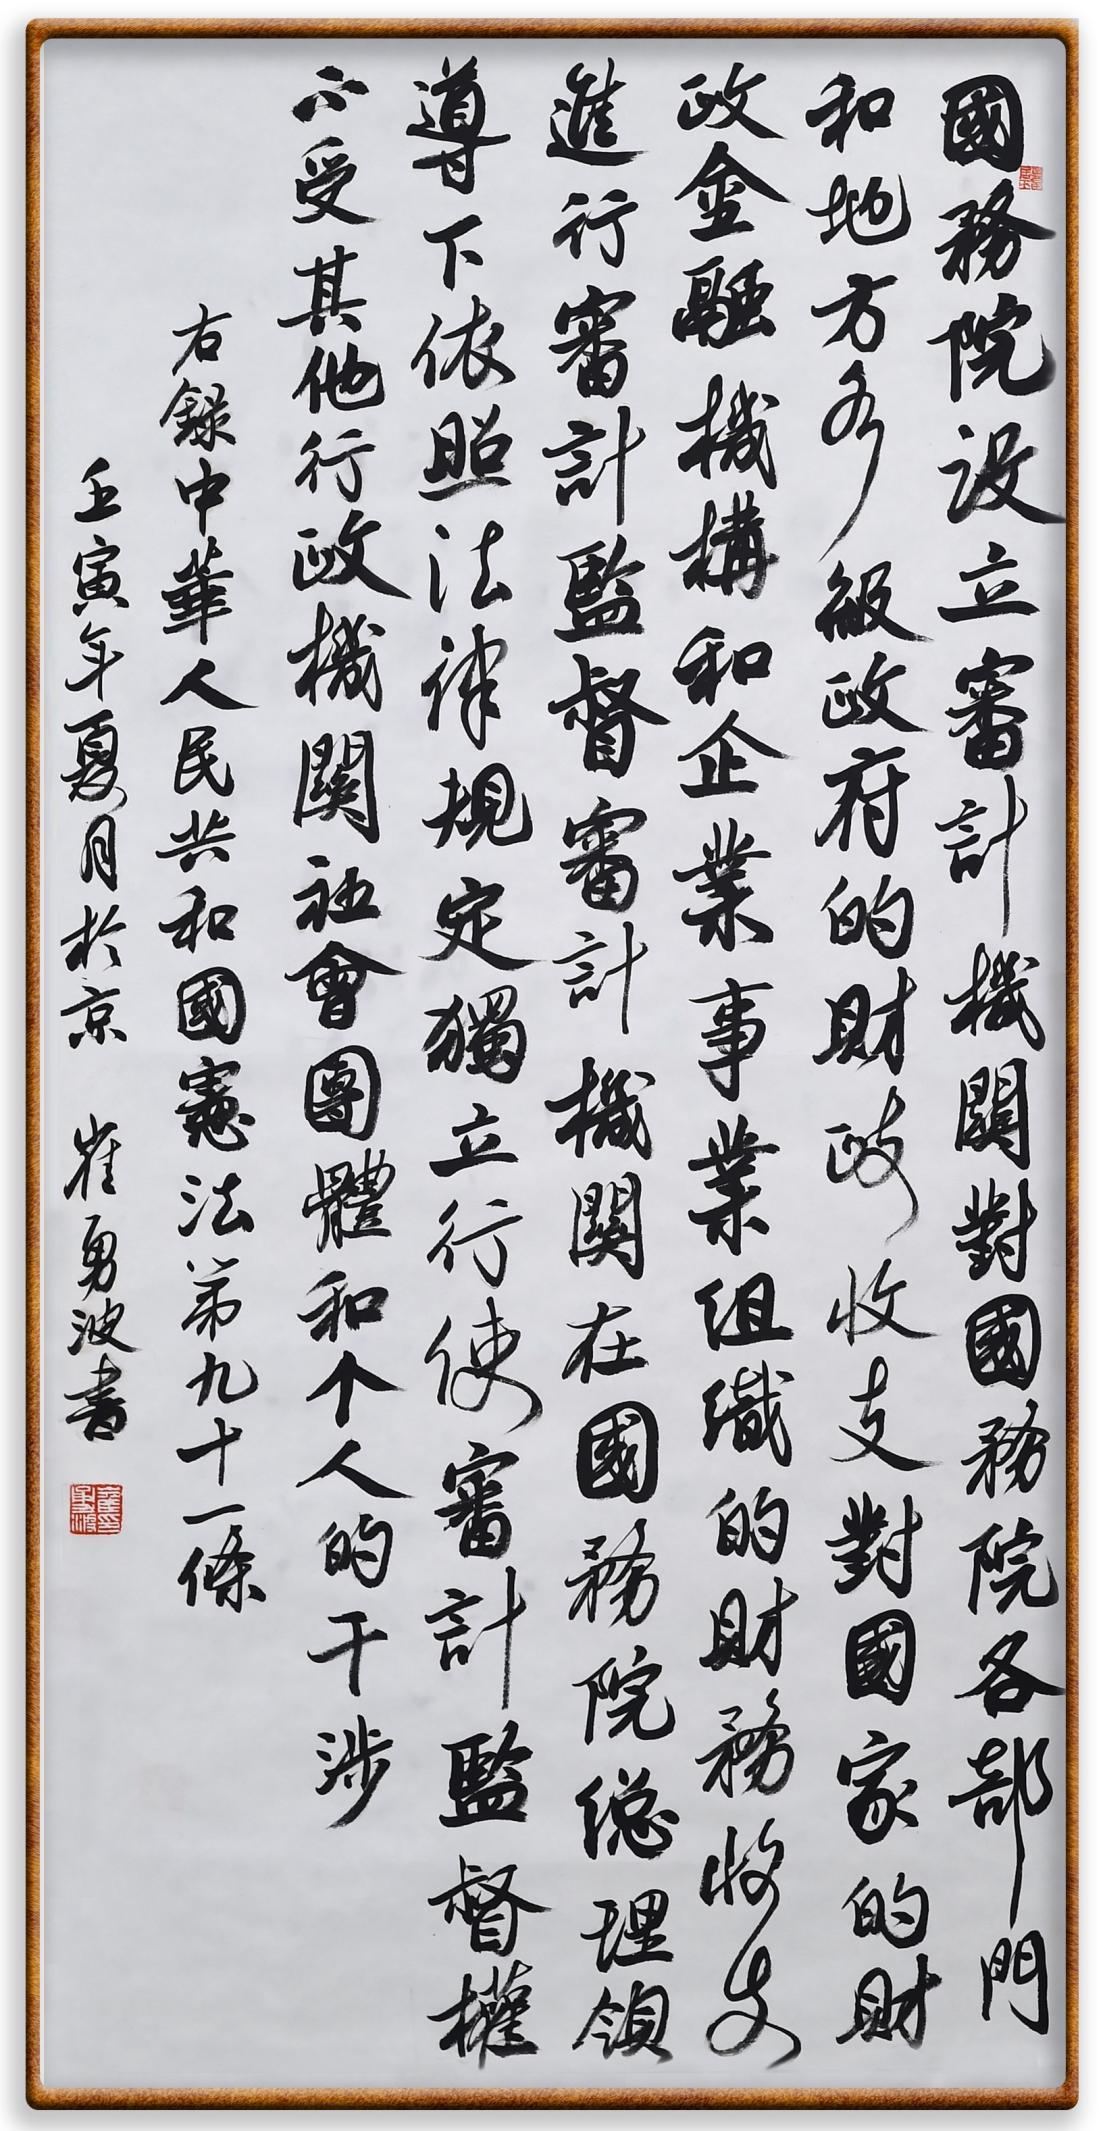 國務院设立審計機關對國務院各部門
和地方各級政府的財政收支對國家的財
政金融機構和企業事業组織的財務收支
進行審計監督審計機關在國務院總理領
導下依照法律規定獨立行使審計監督權
不受其他行政機關社會團體和个人的干涉
右錄中華人民共和國憲法第九十一條
壬寅年夏月於京 崔勇波書